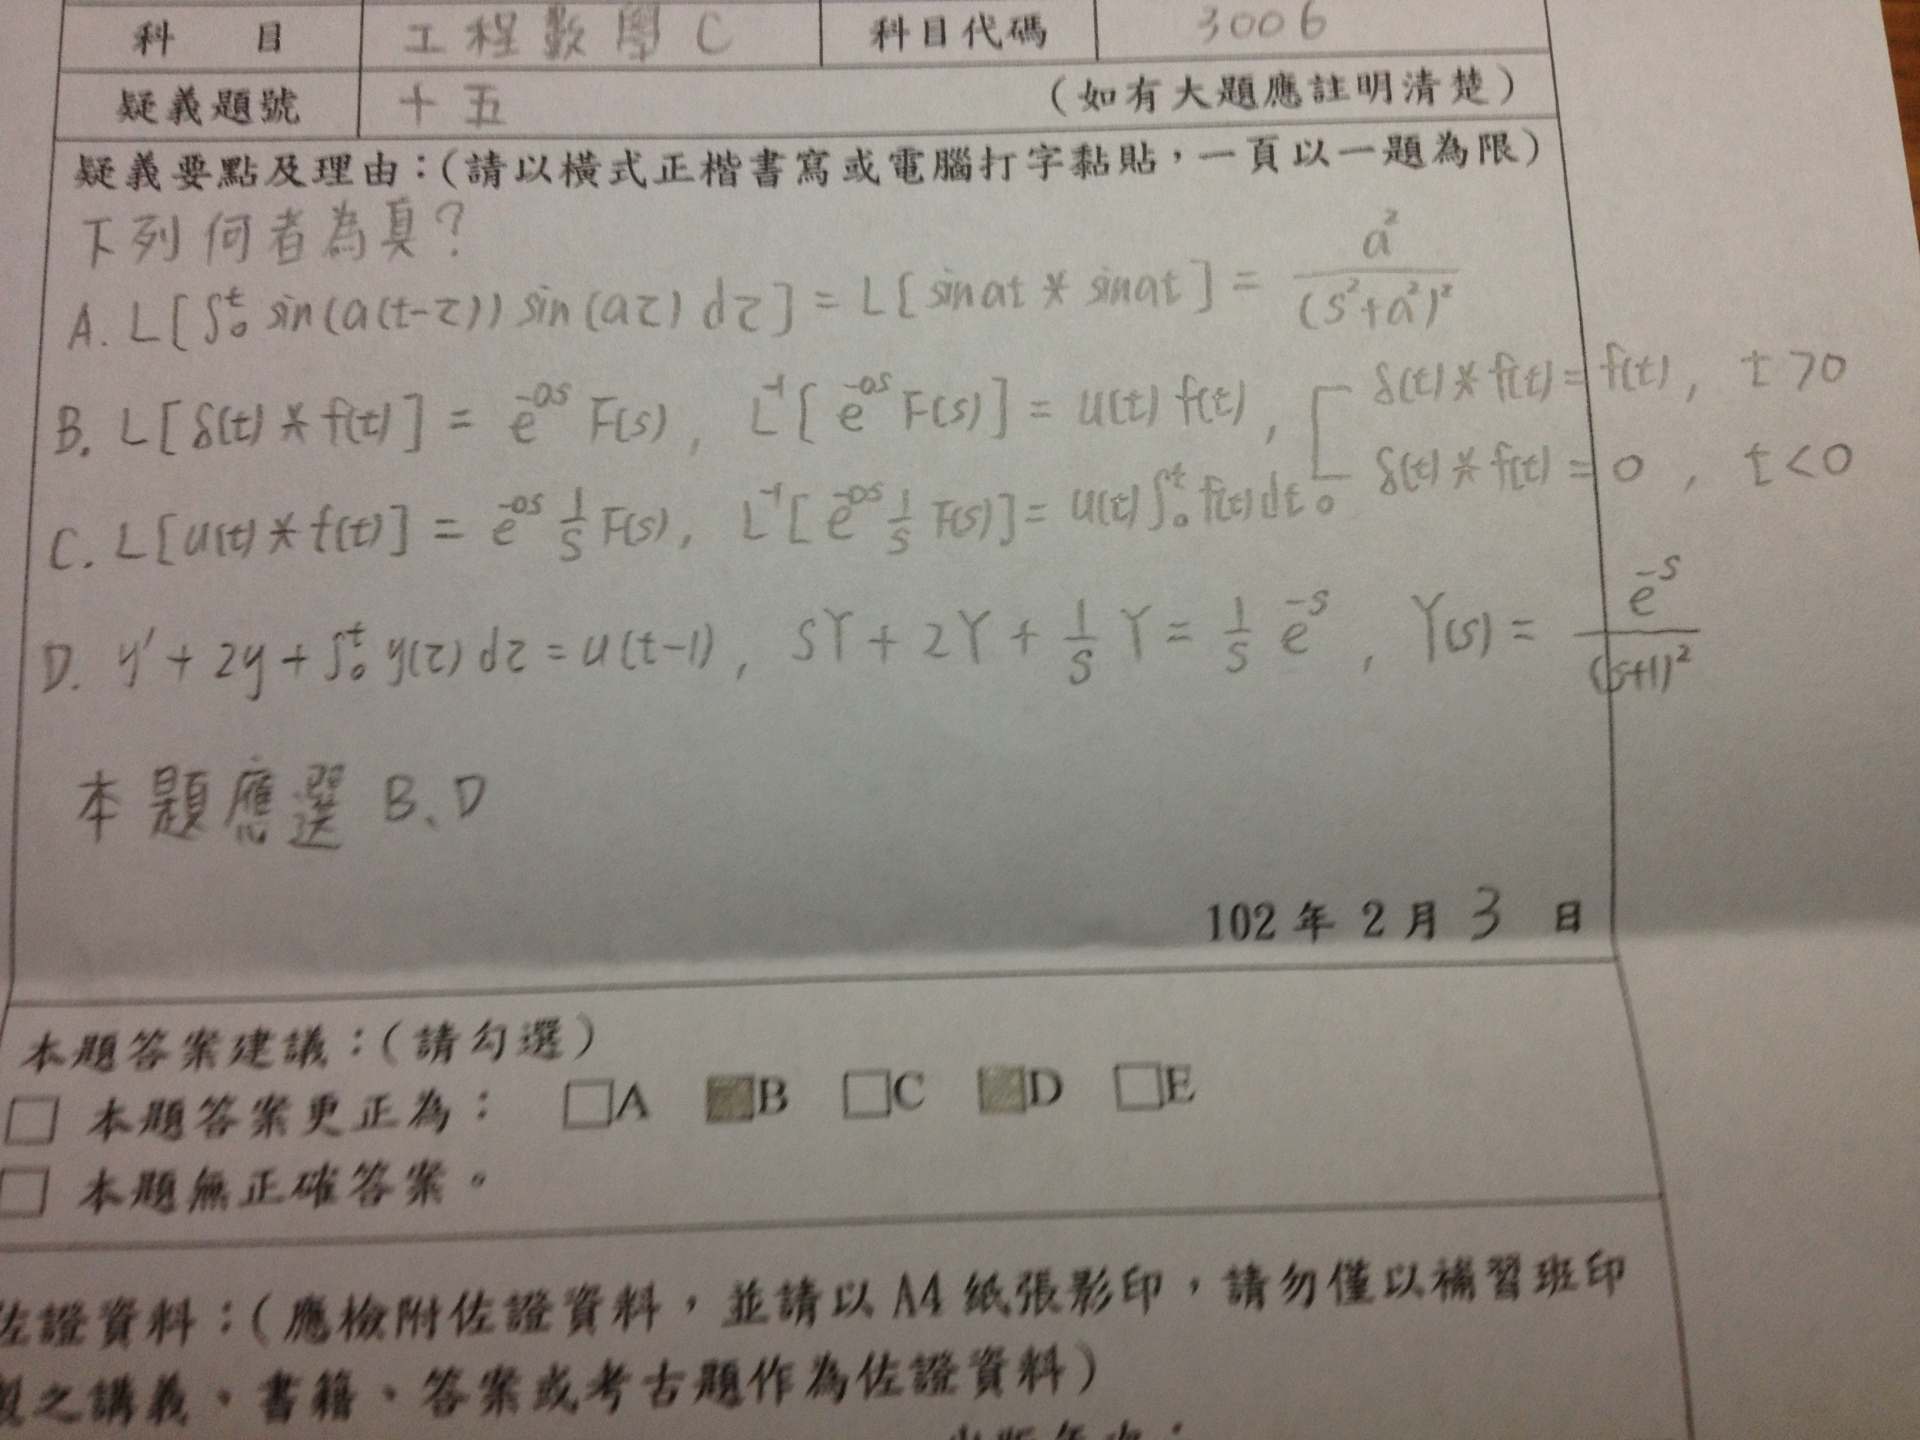 科 目 工程數學 C 科目代碼 3006
疑義題號 十五 (如有大題應註明清楚)
疑義要點及理由：(請以橫式正楷書寫或電腦打字黏貼，一頁以一題為限)
下列何者為真？
A. L[∫₀ᵗ sin(a(t-τ)) sin(aτ) dτ] = L[sinat * sinat] = a²/(s²+a²)²
B. L[δ(t) * f(t)] = e^{-0s} F(s), L⁻¹[e^{-0s} F(s)] = u(t) f(t), δ(t) * f(t) = f(t), t>0
δ(t) * f(t) = 0, t<0
C. L[u(t) * f(t)] = e^{-0s} 1/s F(s), L⁻¹[e^{-0s} 1/s F(s)] = u(t) ∫₀ᵗ f(t) dt。
D. y' + 2y + ∫₀ᵗ y(τ) dτ = u(t-1), sY + 2Y + 1/s Y = 1/s e^{-s}, Y(s) = e^{-s}/(s+1)²
本題應選 B、D
102 年 2 月 3 日
本題答案建議：(請勾選)
□ 本題答案更正為： □A ■B □C ■D □E
□ 本題無正確答案。
佐證資料：(應檢附佐證資料，並請以 A4 紙張影印，請勿僅以補習班印
製之講義、書籍、答案或考古題作為佐證資料)